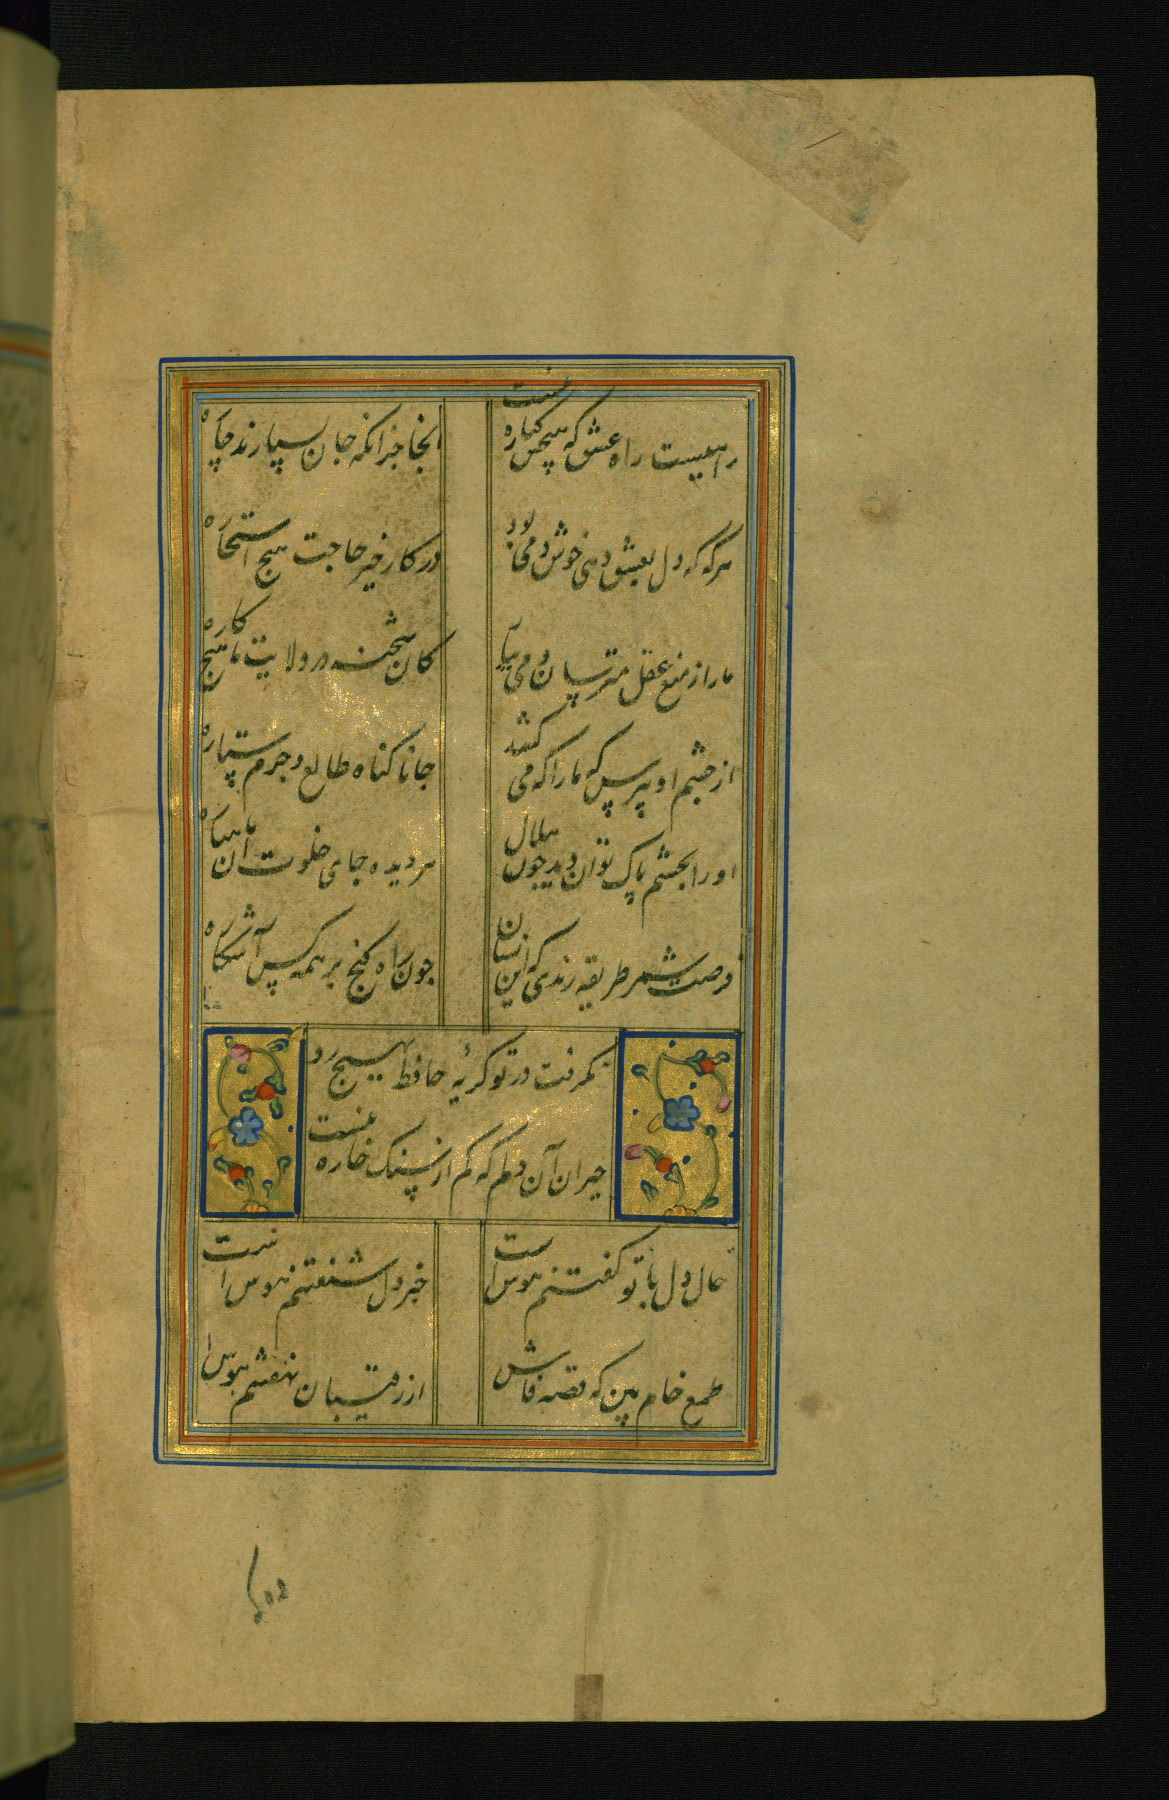 راهیست راه عشق که هیچش کناره نیست
آنجا جز آنکه جان سپارند چاره
هر گه که دل بعشق دهی خوش دمی بود
در کار خیر حاجت هیچ استخاره
ما را ز منع عقل مترسان و می بیار
کان شحنه در ولایت ما هیچ کاره
از چشم او بپرس که ما را که می کشد
جانا کناه طالع و جرم ستاره
او را بچشم پاک توان دید چون هلال
هر دیده جای خلوت آن ماه پاره
فرصت شمر طریقه رندی که این نشان
چون راه کنج بر همه کس آشکاره
نکرفت در تو کریهٔ حافظ بهیچ رو
حیران آن دلم که کم از سنک خاره نیست
حال دل با تو کفتنم هوس است
خبر دل شنفتنم هوس است
طمع خام بین که قصه فاش
از رقیبان نهفتنم هوس